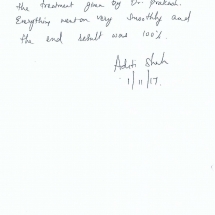 the treatment given by Dr. Prakash.
Everything went on very smoothly and
the end result was 100%.
Aditi Shah
1/11/17.